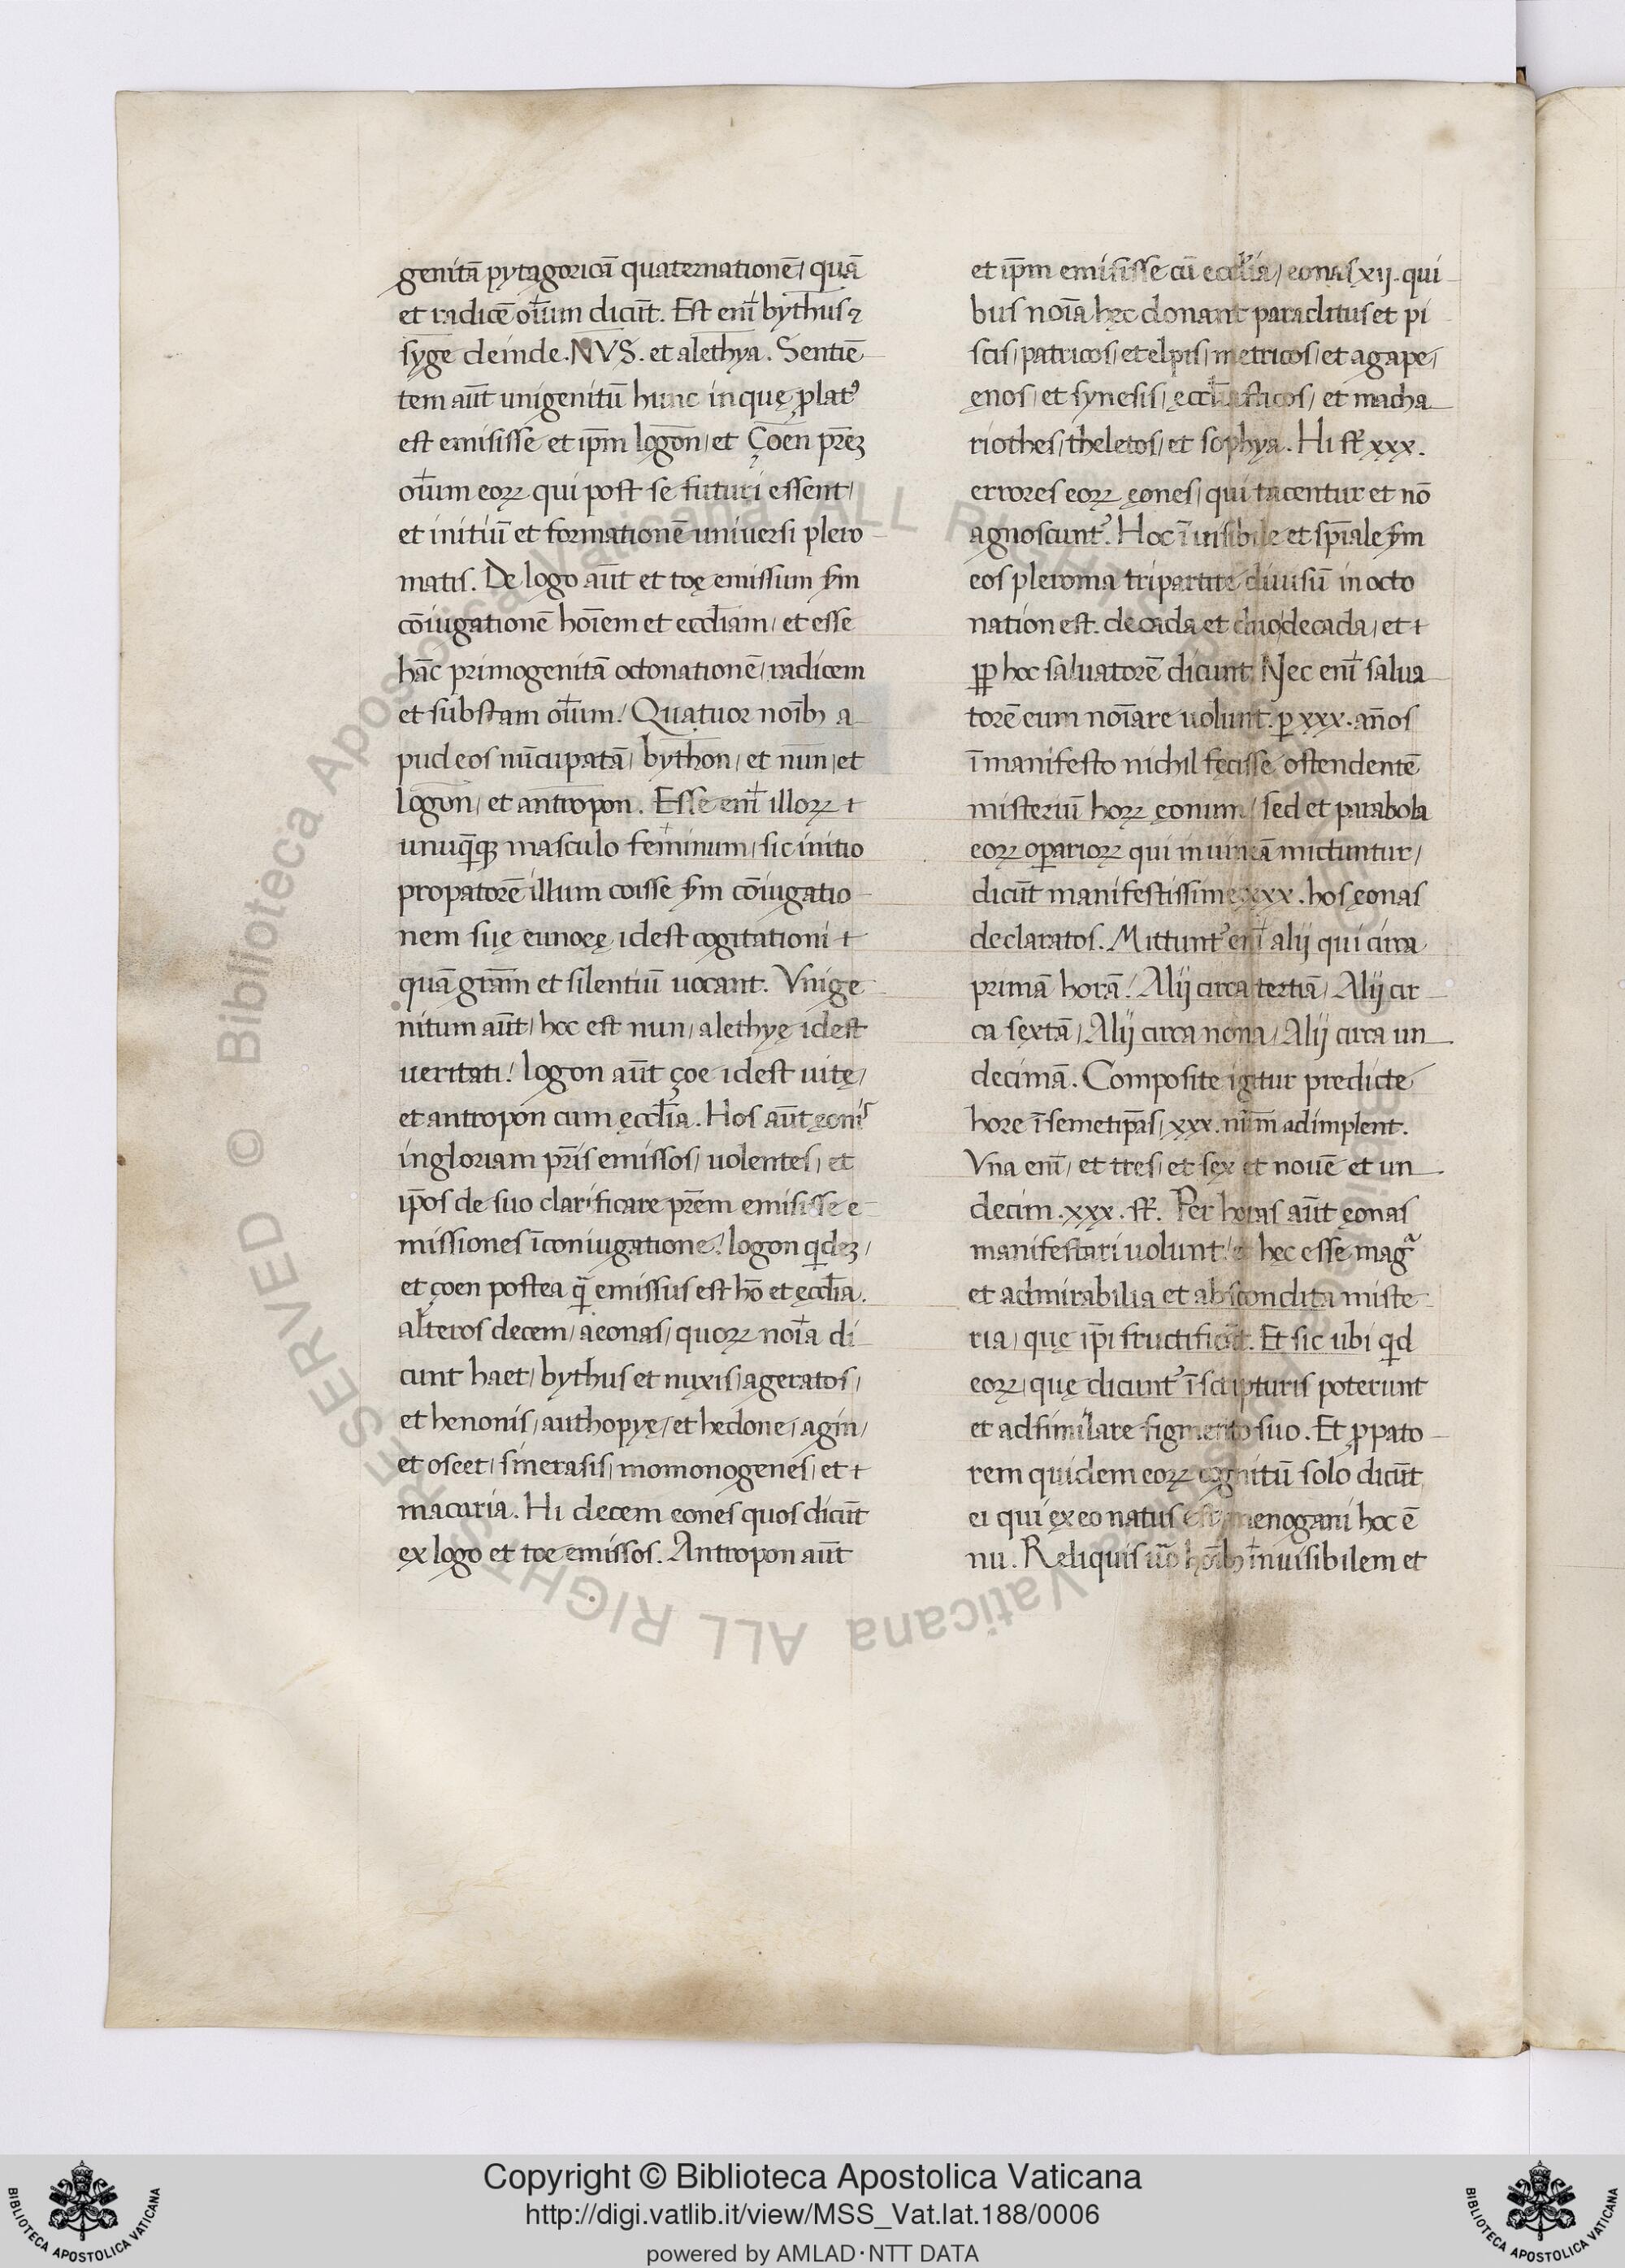 genitā pytagoricā quaternationē/ quā
et radicē oīum dicūt. Est enī bythus &
syge deinde. NVS. et alethya. Sentiē
tem aūt unigenitū hunc in quę plat᾽
est emisisse et ip̄m logon/ et Çoen pr̄eȝ
oīum eoꝝ qui post se futuri essent/
et initiū et formationē uniuersi plero
matis. De logo aūt et toę emissum ẜm
cōiugationē hoīem et eccl̄iam/ et esse
hāc primogenitā octonationē/ radicem
et substam oīum! Quatuor noīb; a
pud eos nūcupatā/ bython/ et nun/ et
logon/ et antropon. Esse enī illoꝝ t
unuq̄q; masculo feminum/ sic initio
propatorē illum coisse ẜm cōiugatio
nem suę eunoeę idest cogitationi t
quā grām et silentiū uocant. Vnige
nitum aūt/ hoc est nun/ alethyę idest
ueritati! logon aūt çoe idest uitę/
et antropon cum ęccl̄ia. Hos aūt ęonis
in gloriam pr̄is emissos/ uolentes/ et
ip̄os de suo clarificare pr̄em emisisse e
missiones ī coniugatione! logon qdeȝ/
et çoen postea q̄ emissus est hō et ęccl̄ia.
alteros decem/ aeonas/ quoꝝ noīa di
cunt haet/ bythus et nuxis/ ageratos/
et henonis/ authopyę/ et hedone/ agin/
et oseet/ sinerasis/ momonogenes/ et t
macaria. Hi decem eones quos dicūt
ex logo et toe emissos. Antropon aūt
et ip̄m emisisse cū eccl̄ia/ eonas xij. qui
bus noīa hęc donant paraclitus et pi
stis/ patricos/ et elpis/ metricos/ et agape/
ęnos/ et synesis/ ęccl̄iasticos/ et macha
riothes/ theletos/ et sophya. Hi st̄ xxx.
errores eoꝝ ęones/ qui tacentur et nō
agnoscunt᾽. Hoc īuisibile et sp̄iale ẜm
eos pleroma tripartite diuisū in octo
nation est. decada et duodecada/ et t
ꝓp hoc saluatorē dicunt. Nec enī salua
torē eum noīare uolunt. ꝑ xxx. an̄os
ī manifesto nichil fęcisse ostendentē
misteriū hoꝝ ęonum/ sed et parabola
eoꝝ oꝑarioꝝ qui in uineā mictuntur/
dicūt manifestissime xxx. hos ęonas
declaratos. Mittunt᾽ enī alij qui circa
primā horā! Alij circa tertiā/ Alij cir
ca sextā/ Alij circa nona/ Alij circa un
decimā. Composite igitur predicte
hore ī semetip̄as/ xxx. nūm adimplent.
Vna enī/ et tres/ et sex et nouē et un
decim. xxx. st̄. Per horas aūt ęonas
manifestari uolunt! et hęc esse magᷓ
et admirabilia et abscondita miste
ria/ quę ip̄i fructificāt. Et sic ubi qd
eoꝝ/ quę dicunt᾽ ī scripturis poterunt
et adsimilare figmento suo. Et ꝓpato
rem quidem eoꝝ cognitū solo dicūt
ei qui ex eo natus est menogani hoc ē
nu. Reliquis uō hoīb; inuisibilem et
Copyright © Biblioteca Apostolica Vaticana
http://digi.vatlib.it/view/MSS_Vat.lat.188/0006
powered by AMLAD·NTT DATA
BIBLIOTECA APOSTOLICA VATICANA
BIBLIOTECA APOSTOLICA VATICANA